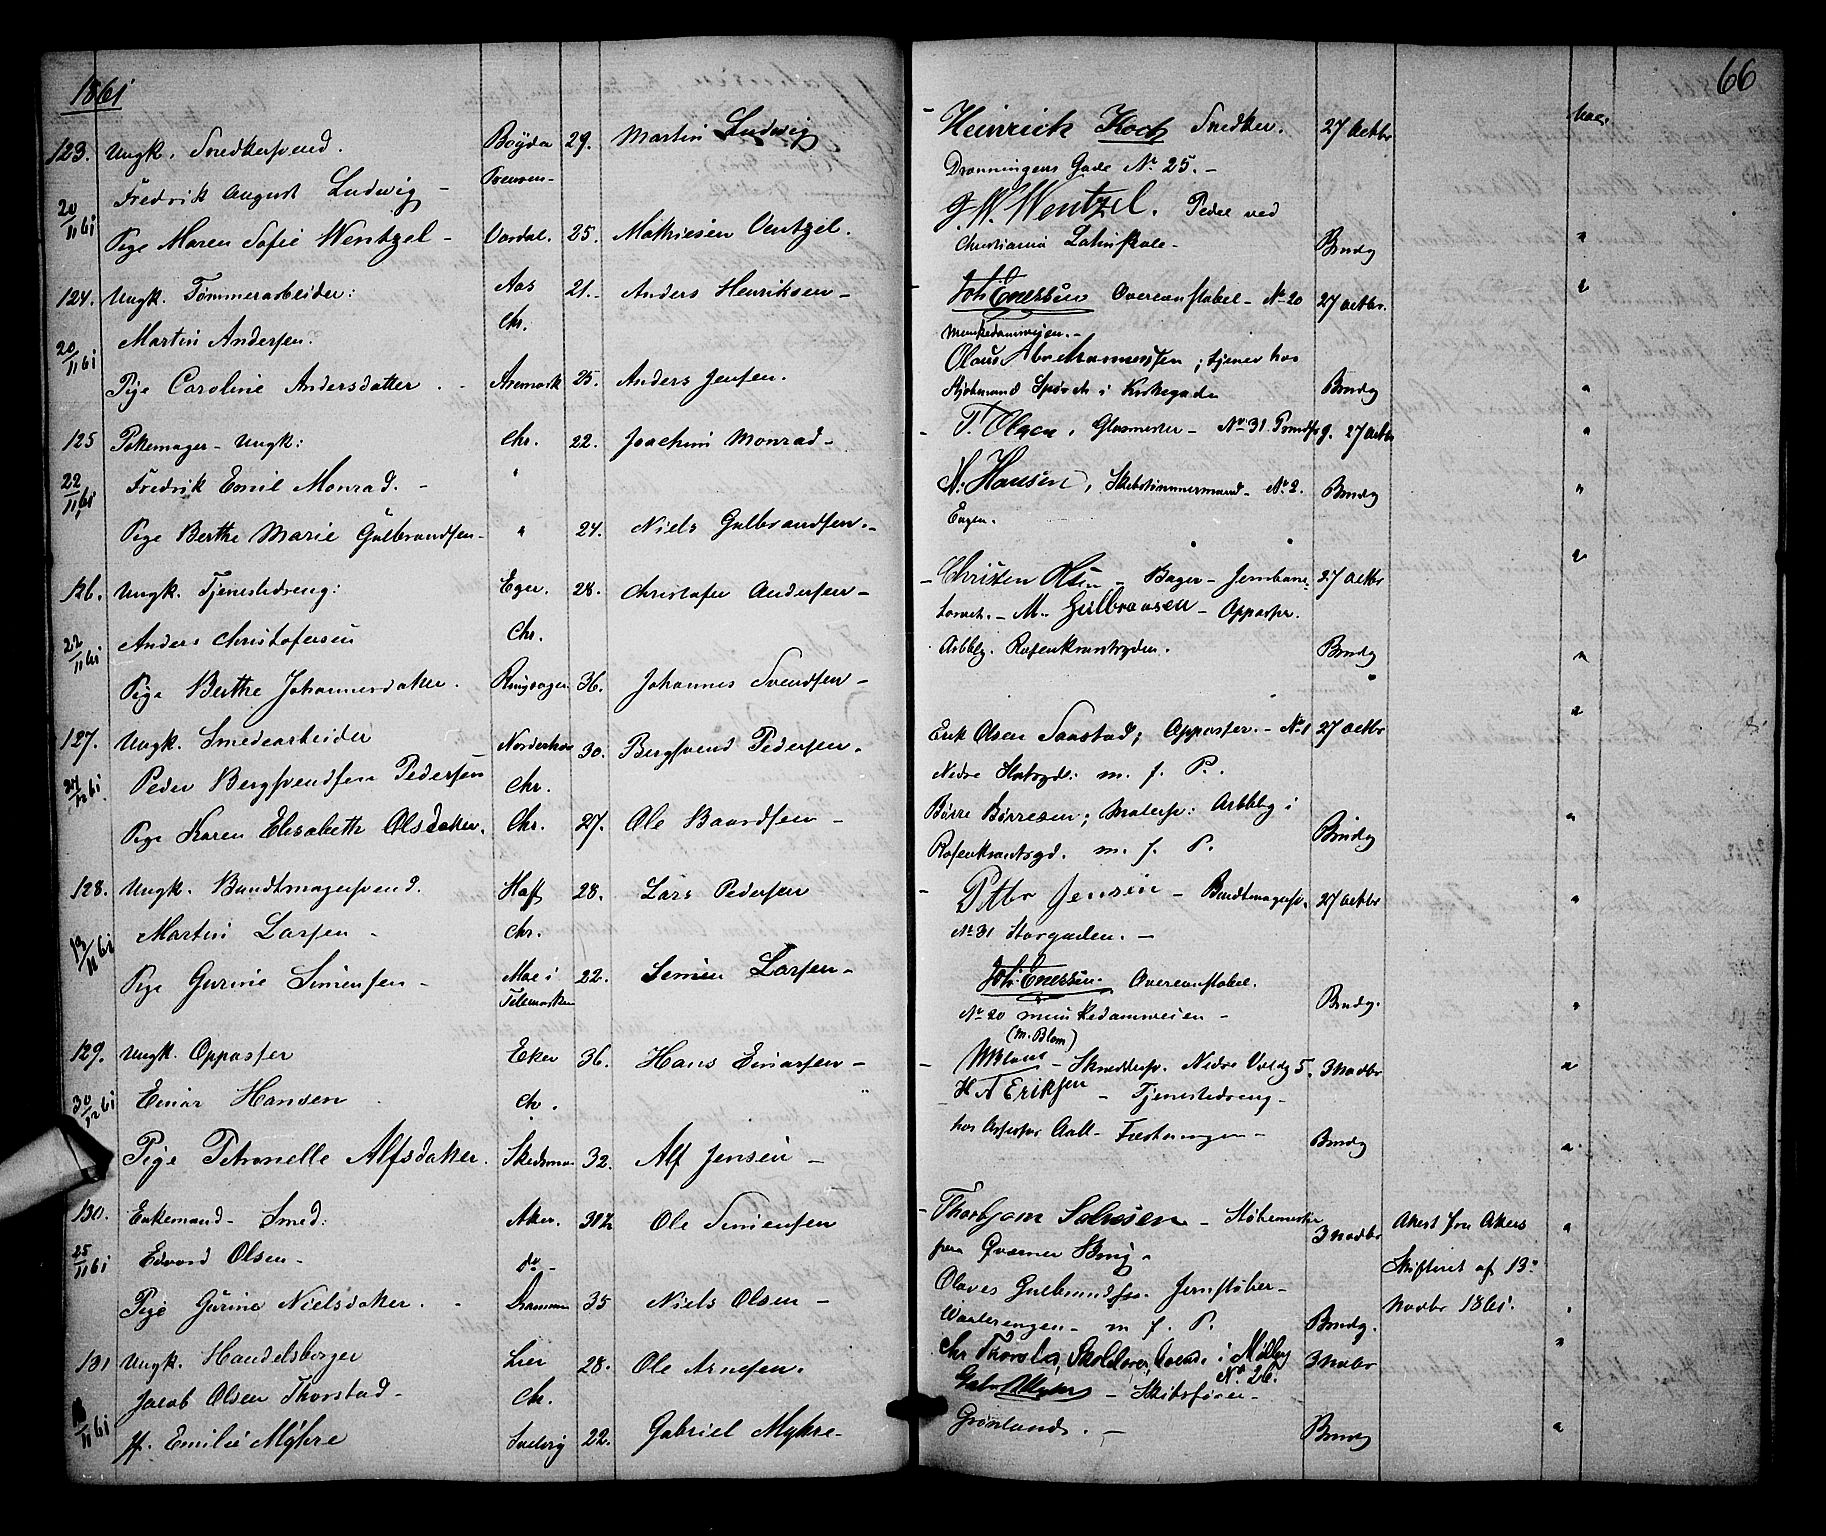 1861
66
123. Ungk. Snedkersvend. Bøyda 29. Martin Ludwig
Fredrik August Ludwig - Preusen-
20/11 61
Pige Maren Sofie Wentzel - Vardal. 25. Mathiesen Ventzel.
124. Ungk. Tømmerarbeider: Aas 21. Anders Henriksen -
Chr.
Martin Andersen.
20/11 61
Pige Caroline Andersdatter. Aremark 25. Anders Jensen.
125 Ungk: Chr. 22. Joachim Monrad -
22/11 61 Fredrik Emil Monrad. - "
Pige Berthe Marie Gulbrandsen - " 24. Niels Gulbrandsen. -
126. Ungk. Tjenestedreng: Eger. 28. Christofer Andersen -
22/11 61 Anders Christofersen Chr.
Pige Berthe Johannesdatter. Ringsager 36. Johannes Svendsen -
127. Ungk. Smedearbeider Norderhov 30. Bergsvend Pedersen.
27/12 61 Peder Bergsvendsen Pedersen Chr.
Pige Karen Elisabeth Olsdatter. Chr. 27. Ole Baardsen -
128. Ungk. Bundtmagersvend. Haff 28. Lars Pedersen
13/11 61 Martin Larsen - Chr.
Pige Gurine Simensen - Moe i 22. Simen Larsen -
Telemarken
129. Ungk. Oppasser Eker 36. Hans Einarsen -
30/12 61 Einar Hansen Ch.
Pige Petronelle Alfsdatter. Skedsmo 32. Alf Jensen -
130. Enkemand - Smed: Aker. 37½ Ole Simensen
25/11 61 Edvard Olsen - do -
Pige Gurine Nielsdatter. - Drammen 35 Niels Olsen -
131 Ungk. Handelsborger Lier 28. Ole Arnesen.
Jacob Olsen Thorstad - Ch.
11 61 Jf. Emilie Myhre Svelvig 22. Gabriel Myhre -
- Heinrich Koch Snedker. 27 Octbr
Dronningens Gade No 25. -
J. W. Wentzel. Pedel ved
Christiania Latinskole - Bmdg "
Joh Enersen Overconstabel - No 20 27 octbr. "
Munkedamsveien. -
Olaus Abrahamessen; tjener hos
Kjøbmand Spørch i Kirkegaden Bmdg "
- T. Olsen, Glasmester - No 31 Grændsg. 27 octbr "
N. Hansen, Skibstimmermand - No 2. Bmdg "
Engen.
- Christen Olsen - Bager - Jernbane- 27 octbr "
torvet. - M. Gulbransen - Oppasser.
Arbbg. Rosenkrantzgden. Bmdg "
Erik Olsen Saastad; Oppasser. - No 1 27 octbr "
Nedre Slotsgd: m. f. P.
Børre Børresen; Malersv: Arbbg i
Rosenkrantsgd. m. f. P. Bmdg "
- Petter Jensen - Bundtmagersv. 27 octbr "
No 31 Storgaden. -
Joh: Enersen. Overconstabel.
No 20 Munkedamsveien - Bmdg. "
(M. Blom)
- M Blom - Skreddersv. Nedre Voldg 5. 3 Novbr "
H A Eriksen - Tjenestedreng -
hos Assessor Aall - Fæstningen - Bmdg "
- Thorbjørn - 3 Novbr Attest fra Akers "
fra Qværner Brug.
Skifteret af 13
Olaves Gulbrandsen. Jernstøber - Novbr 1861.
Waalerengen - m f. P. Bmdg. "
Chr Thorstad, i Møllerg 3 Novbr "
No 26.
Gabr Myhre - Skibsfører -
Grønland. - Bmdg "